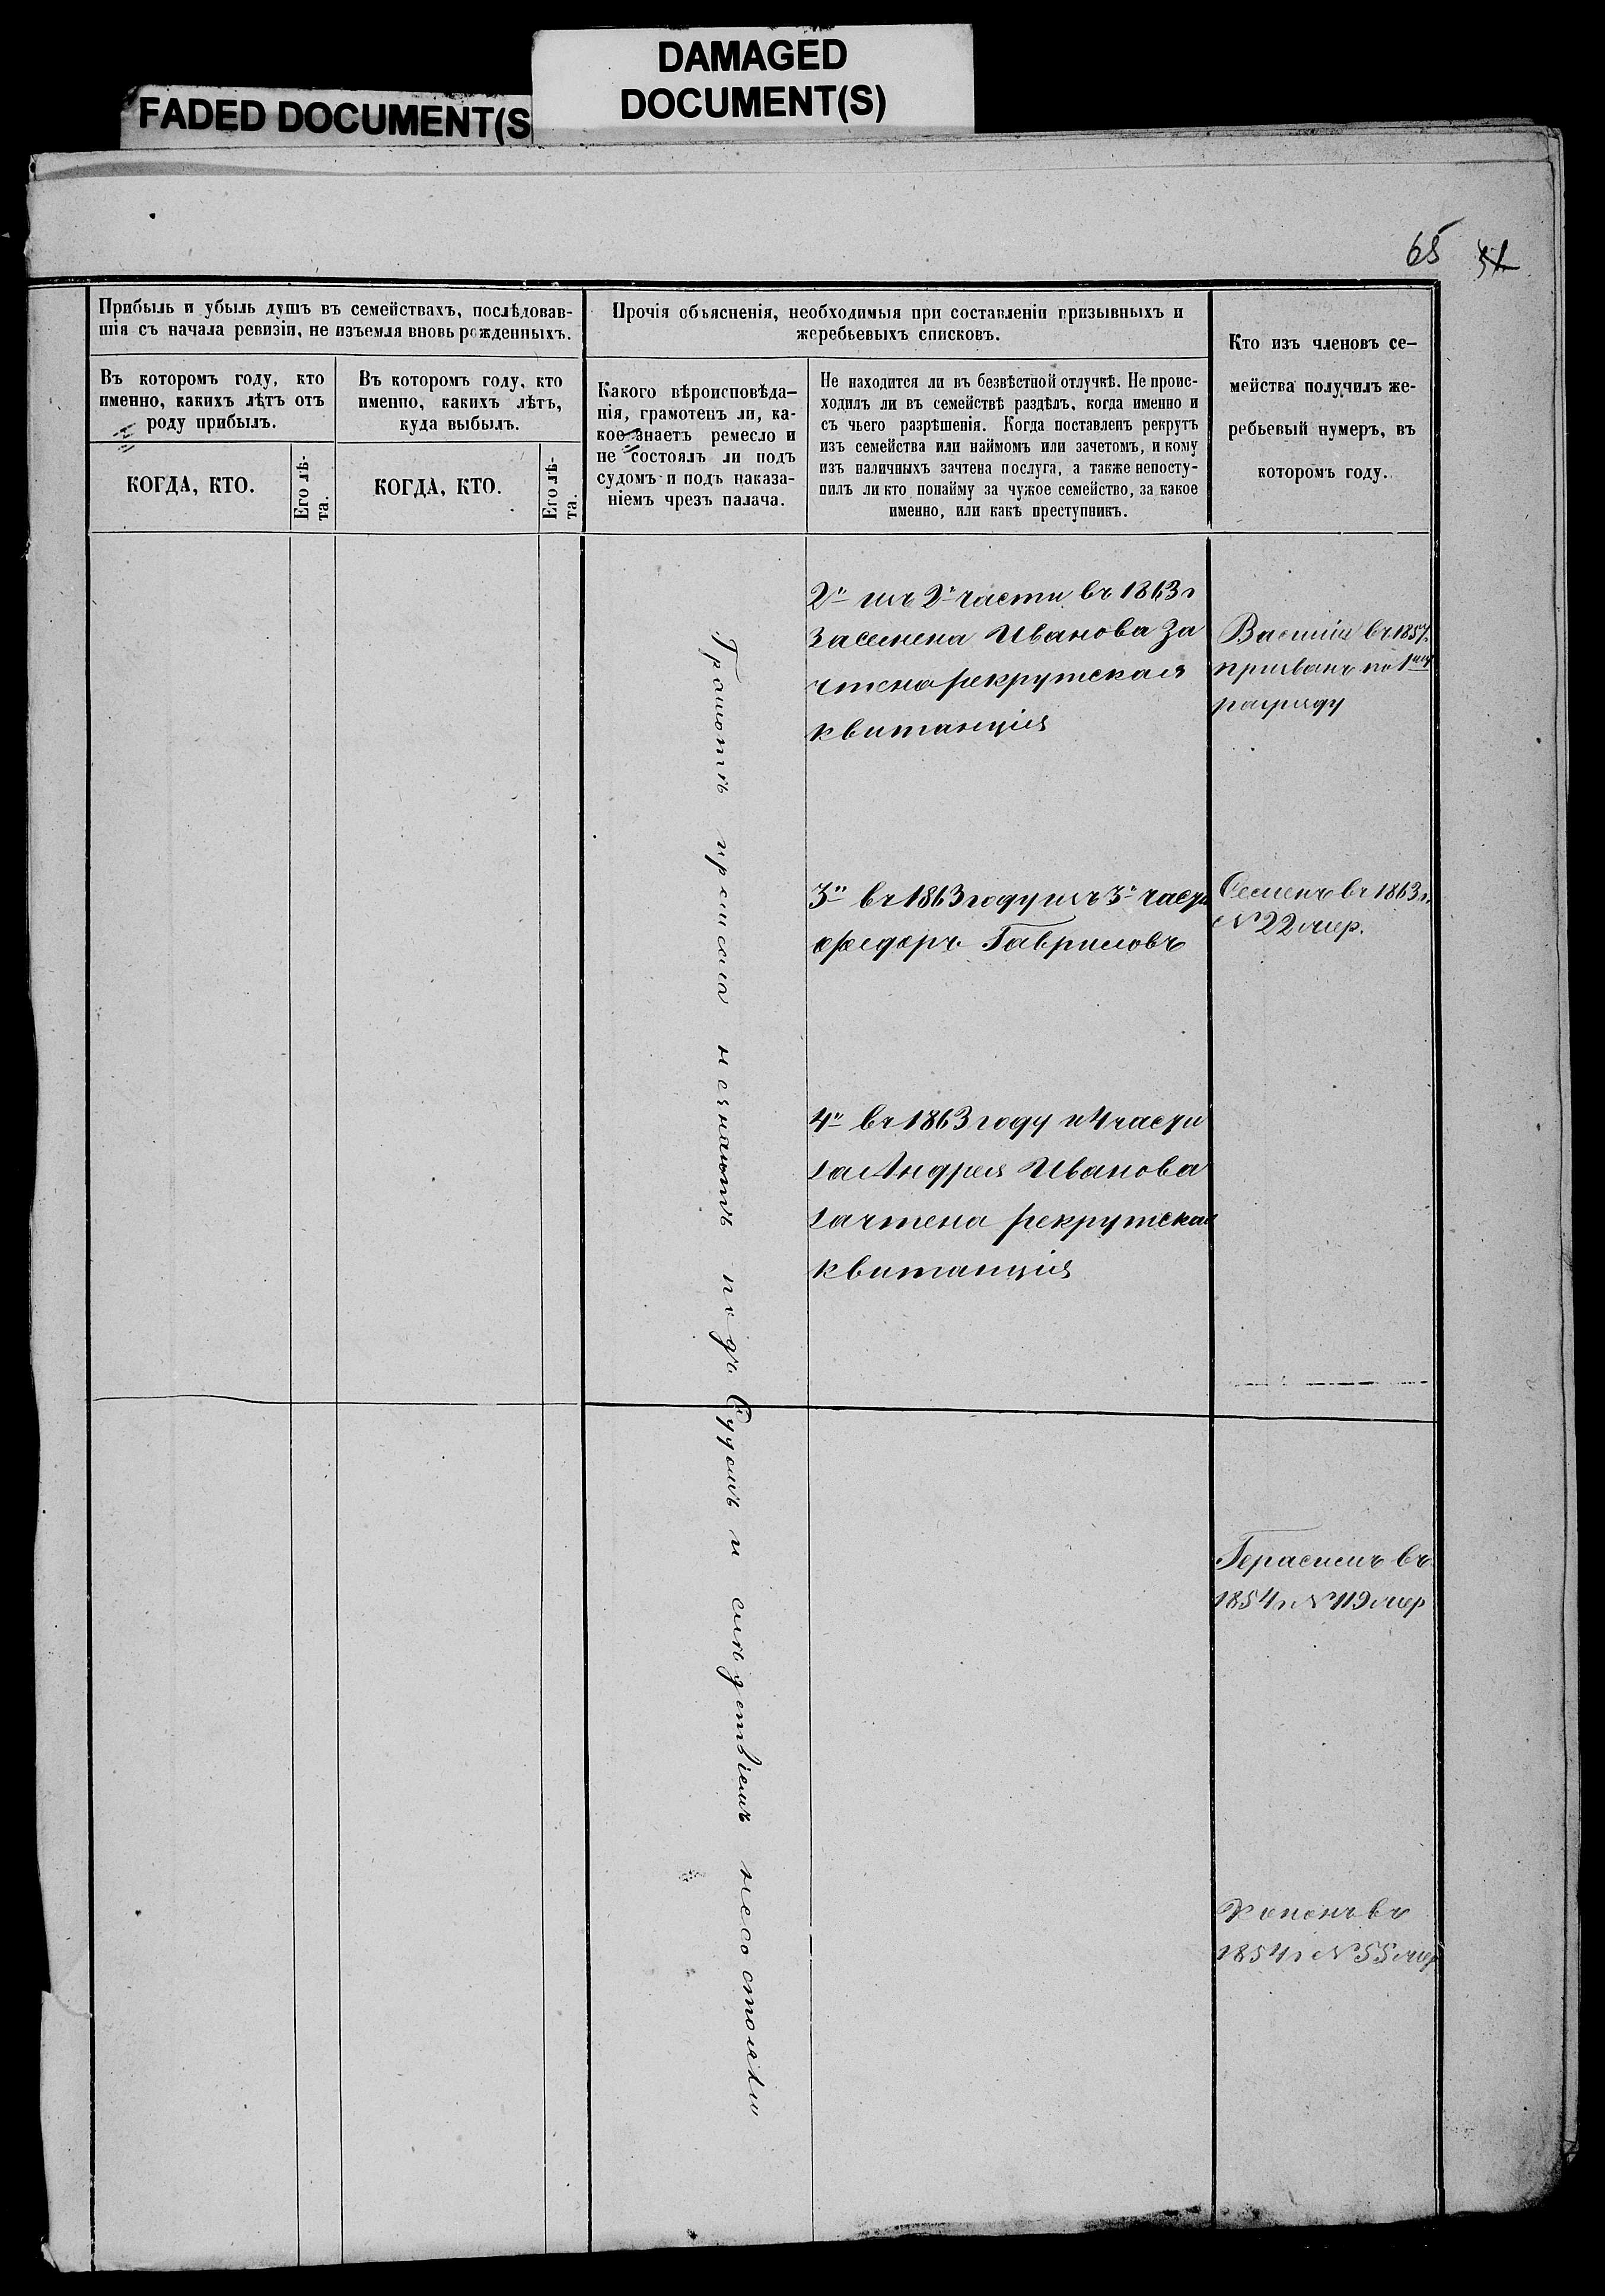 DAMAGED
DOCUMENT(S)
FADED DOCUMENT(S
65
Прибыль и убыль душъ въ семействахъ, послѣдовав-
шія съ начала ревизіи, не изъемля вновь рожденныхъ.
Въ которомъ году, кто
именно, какихъ лѣтъ отъ
роду прибылъ.
КОГДА, КТО.
Его лѣ-
та.
Въ которомъ году, кто
именно, какихъ лѣтъ,
куда выбылъ.
КОГДА, КТО.
Его лѣ-
та.
Прочія объясненія, необходимыя при составленіи призывныхъ и
жеребьевыхъ списковъ.
Какого вѣроисповѣда-
нія, грамотенъ ли, ка-
кое знаетъ ремесло и
не состоялъ ли подъ
судомъ и подъ наказа-
ніемъ чрезъ палача.
Не находится ли въ безвѣстной отлучкѣ. Не проис-
ходилъ ли въ семействѣ раздѣлъ, когда именно и
съ чьего разрѣшенія. Когда поставленъ рекрутъ
изъ семейства или наймомъ или зачетомъ, и кому
изъ наличныхъ зачтена послуга, а также непосту-
пилъ ли кто понайму за чужое семейство, за какое
именно, или какъ преступникъ.
Кто изъ членовъ се-
мейства получилъ же-
ребьевый нумеръ, въ
которомъ году.
Грамотѣ и ремесла незнаютъ подъ Судомъ и слѣдствіемъ несостояли
2й изъ 2й части въ 1863 г
за семена Иванова За
чтена рекрутская
квитанція
Василій въ 1857 г.
призванъ по 1му
разряду
3й въ 1863 году изъ 3й части
Федоръ Гавриловъ
Семенъ въ 1863 г.
№ 22 жер.
4й въ 1863 году и 4 части
за Андрея Иванова
зачтена рекрутская
квитанція
Герасимъ въ
1854 г № 119 жер
въ
1854 г № 55 жер